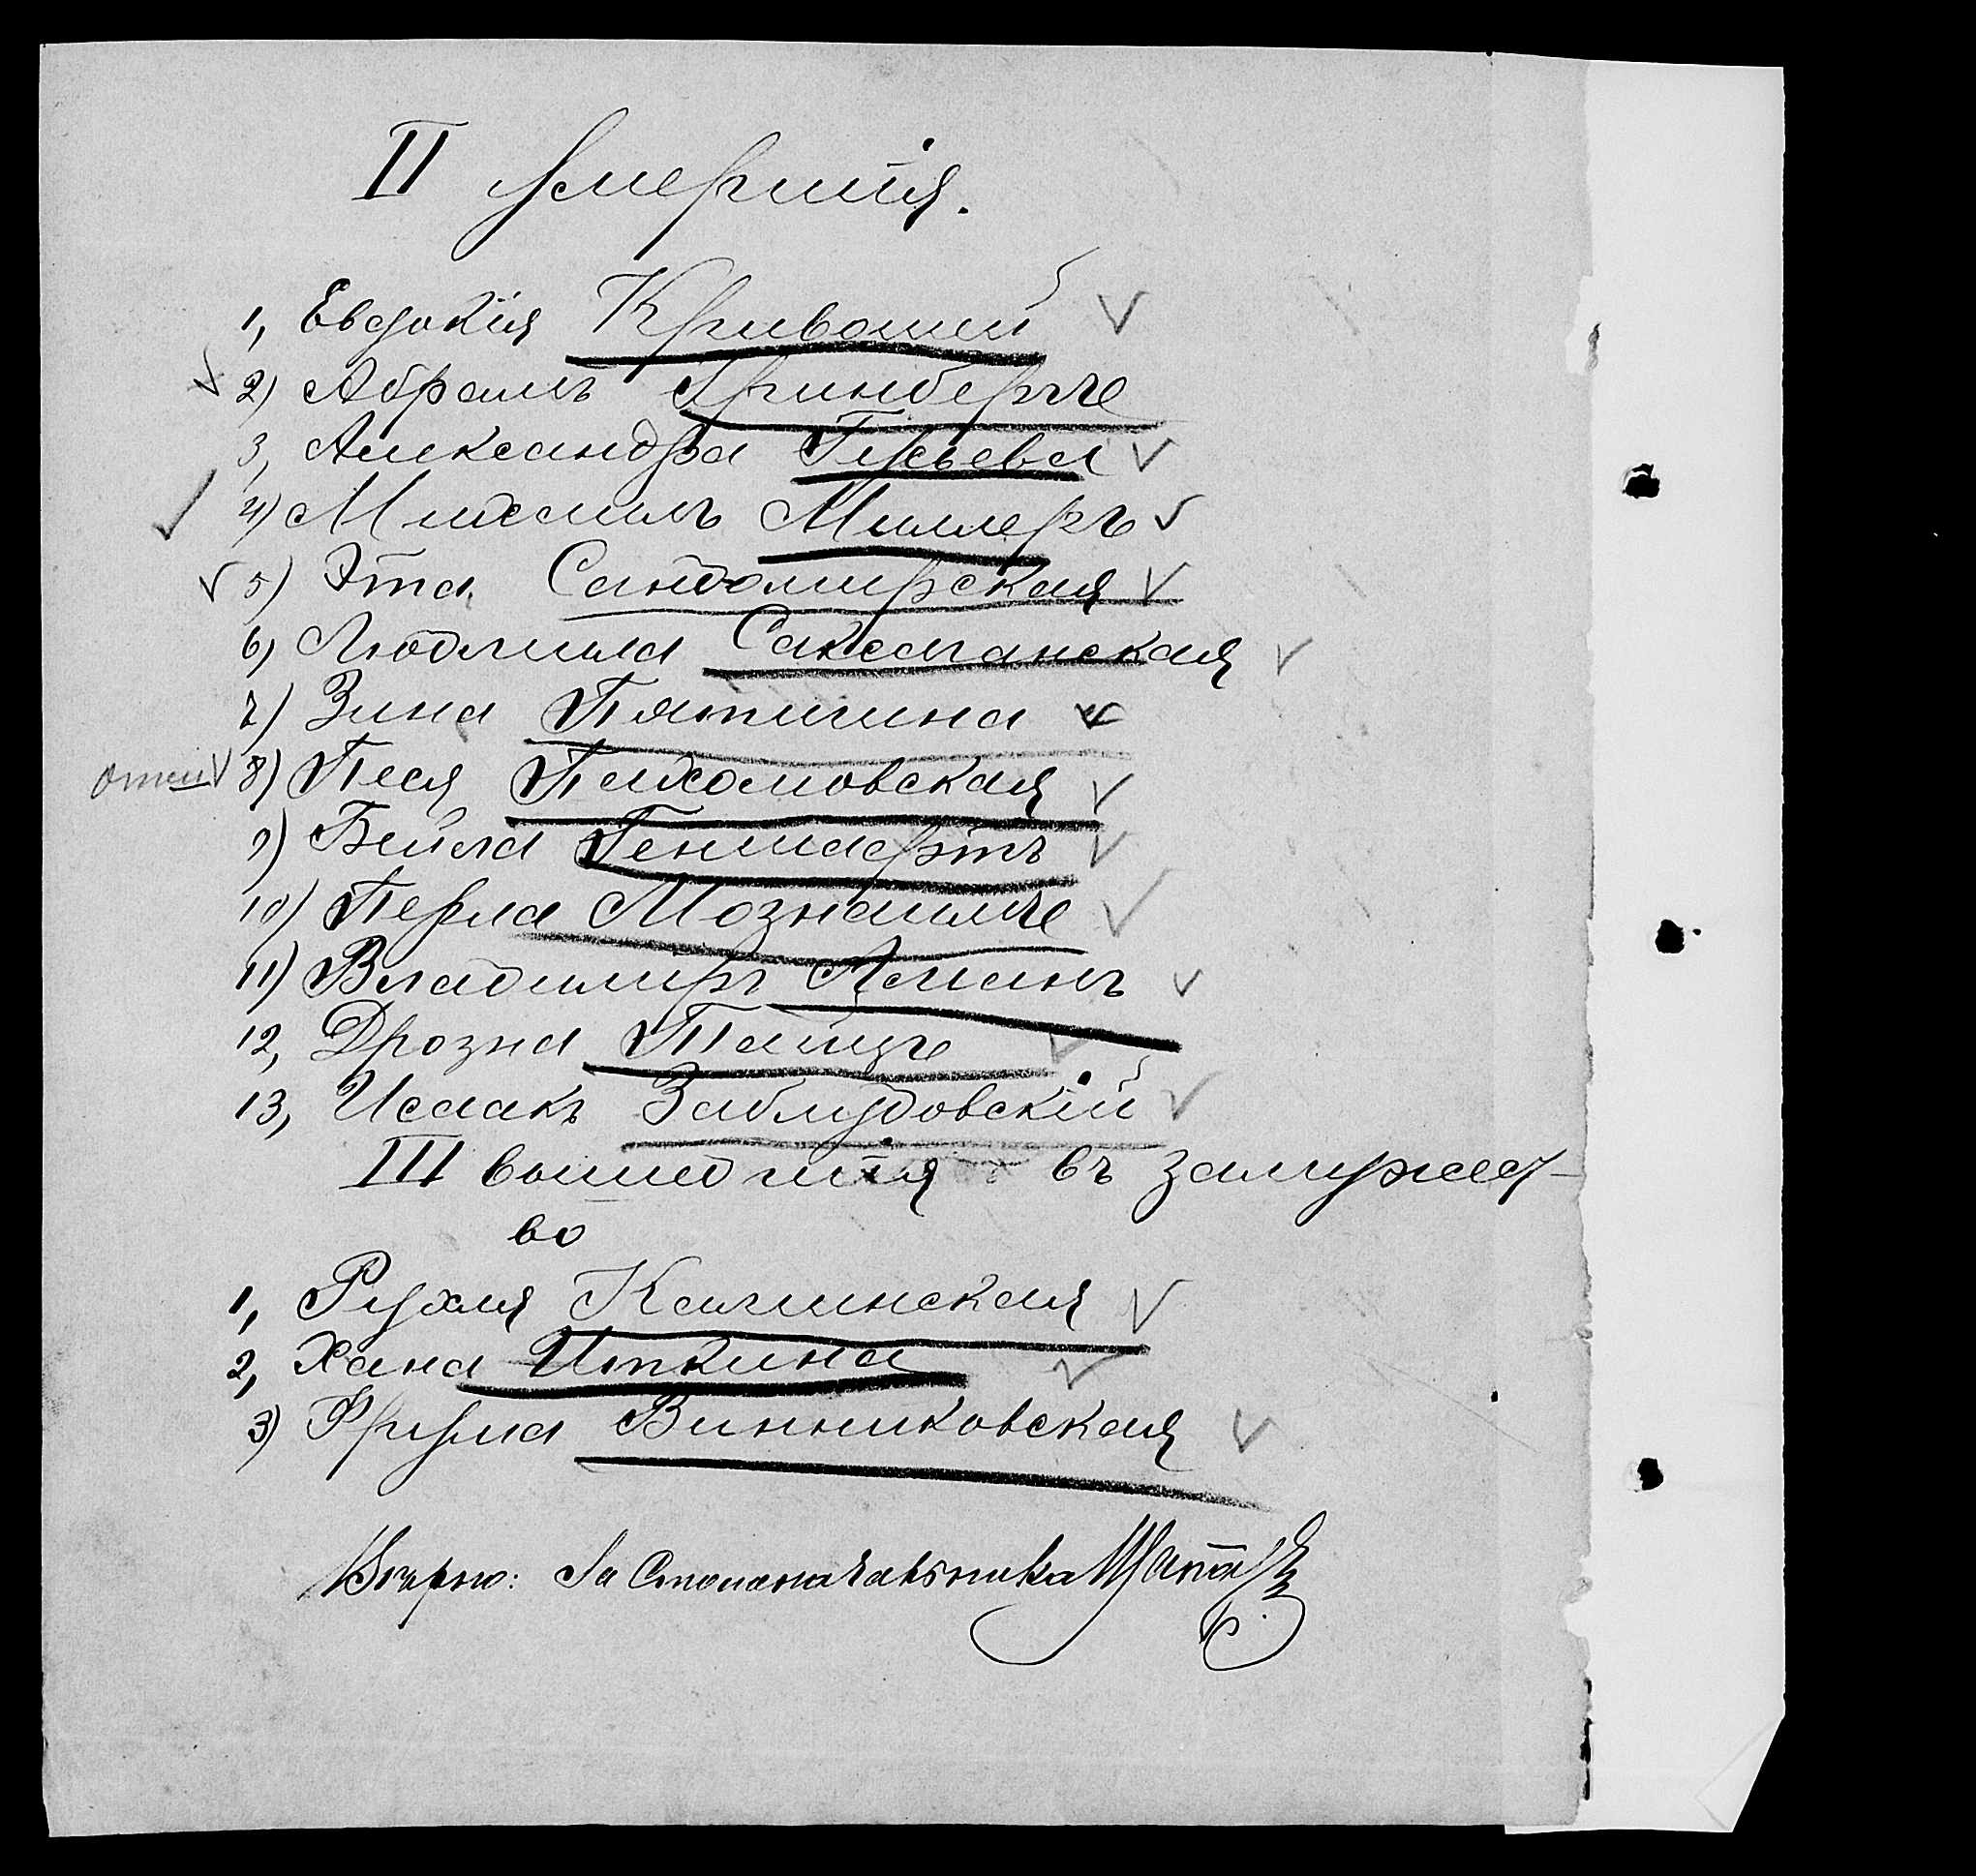 II Умершія.
1, Евдокія Кривошей
2) Абрамъ Гринбергъ
3, Александра Гурьева
4) Михаилъ Миллеръ
5) Эта Сандомирская
6) Людмила Саксаганская
7) Зина Пятигина
8) Песя Пихомовская
9) Бейла Геншафтъ
10) Перла Мознаимъ
11) Владимиръ Аманъ
12, Дрозна Пайцъ
13, Исаакъ Заблудовскій
III вышедшія въ замужест-
во
1, Рухля Калминская
2, Хана Иткина
3) Фрума Винниковская
Вѣрно: За Столоначальника